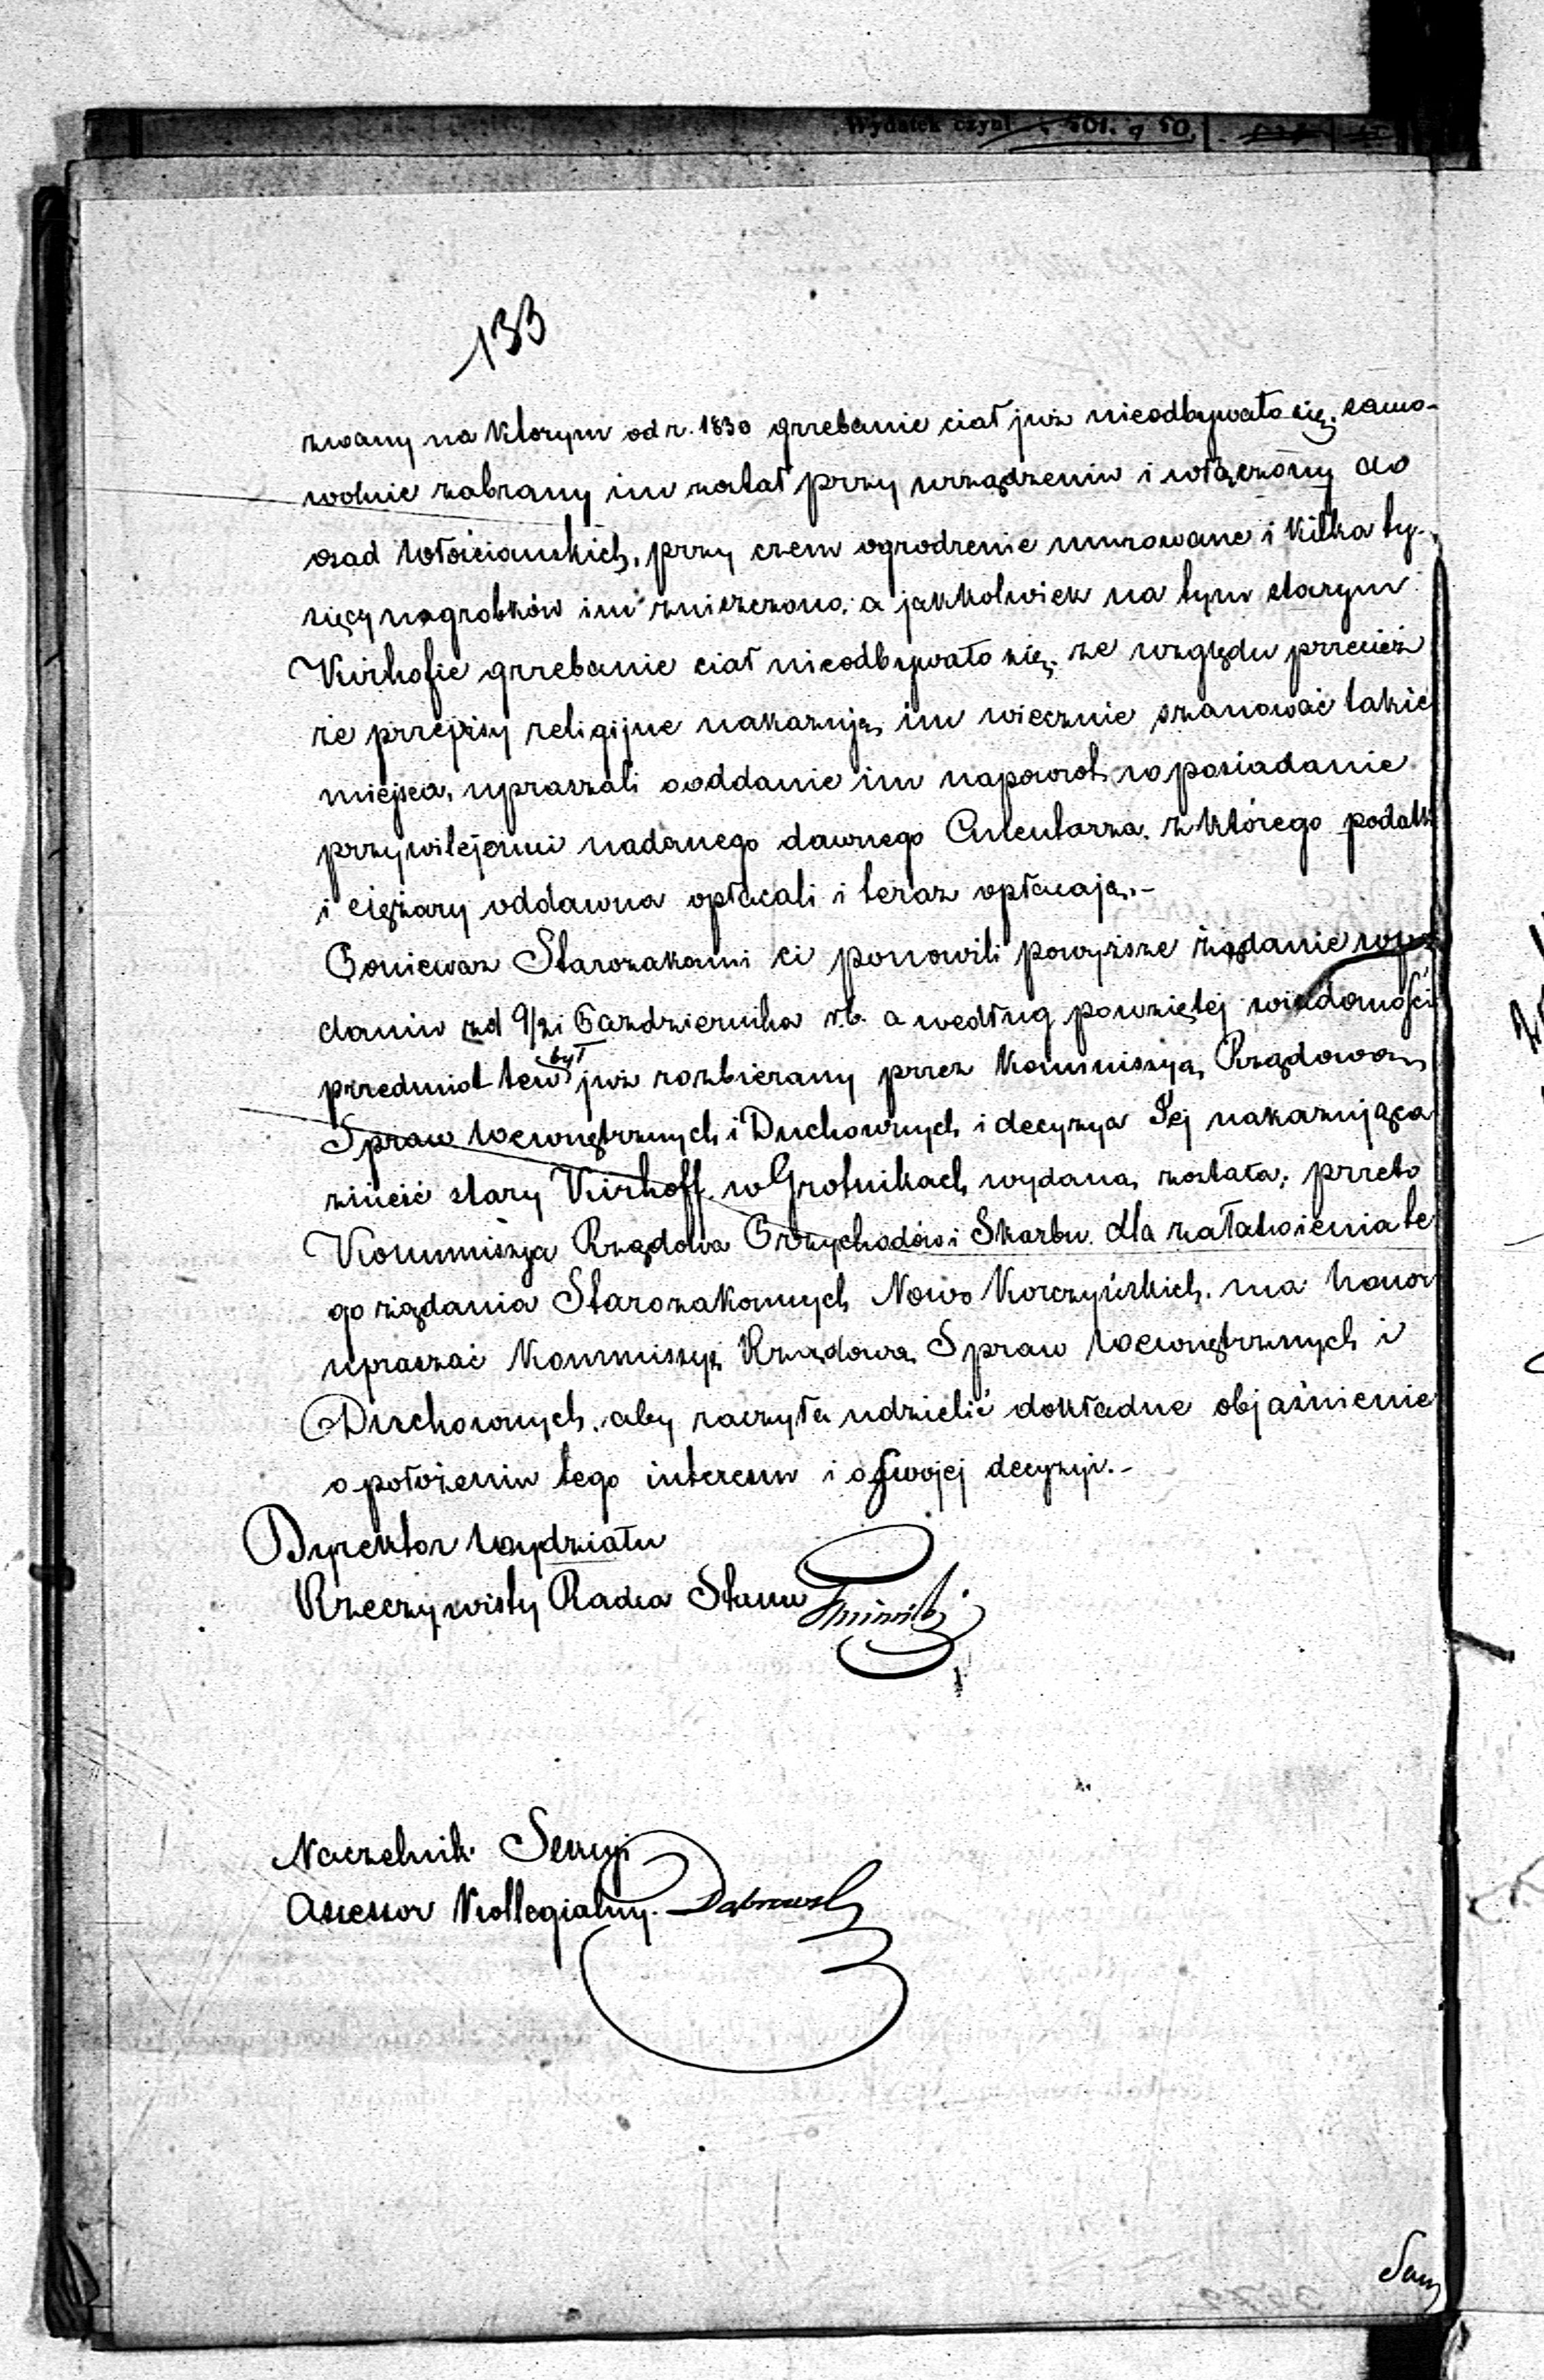 133
zwany na ktorym od r. 1830 grzebanie ciał już nieodbywało się, samo-
wolnie zabrany im został przy urządzeniu i włączony do
osad włościańskich, przy czem ogrodzenie murowane i kilka ty-
sięcy nagrobków im zniszczono, a jakkolwiek na tym starym
Kirhofie grzebanie ciał nieodbywało się, ze względu przecież
że przepisy religijne nakazują im wiecznie szanować takie
miejsca, upraszali o oddanie im napowrót w posiadanie
przywilejami nadanego dawnego Cmentarza, z którego podatk
i ciężary oddawna opłacali i teraz opłacają.-
Poniewaz Starozakonni ci ponowili powyższe żądanie w po
daniu z d 9/21 Października r.b. a według powziętej wiadomości
przedmiot ten był już rozbierany przez Kommissyą Rządową
Spraw Wewnętrznych i Duchownych i decyzya Jej nakazująca
znieść stary Kirhoff w Grotnikach wydana została; przeto
Kommissya Rządowa Przychodów i Skarbu dla załatwienia te
go żądania Starozakonnych Nowo Korczyńskich ma honor
upraszać Kommissyę Rządową Spraw Wewnętrznych i
Duchownych, aby raczyła udzielić dokładne objaśnienie
o położeniu tego interesu i o swojej decyzyi.-
Dyrektor Wydziału
Rzeczywisty Radca Stanu
Naczelnik Sekcyi
Assessor Kollegialny. Dąbrowski